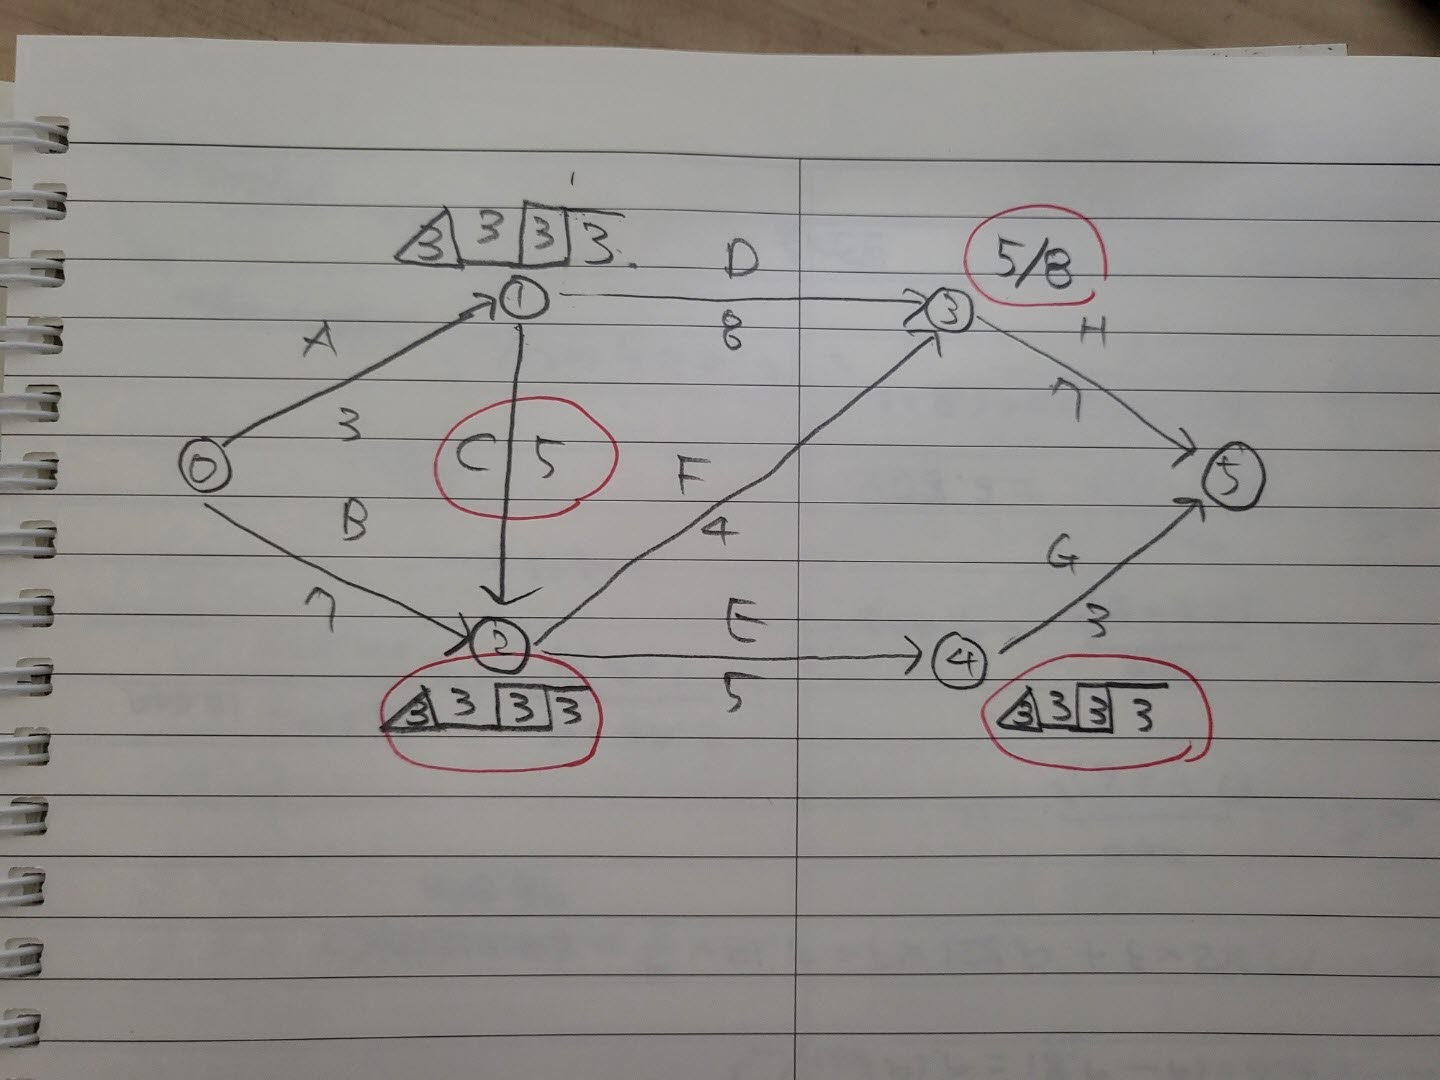 3 3 3 3
5/8
D
①
③
8
A
H
3
7
C 5
F
⓪
⑤
B
4
G
7
E
3
②
④
5
3 3 3 3
3 3 3 3